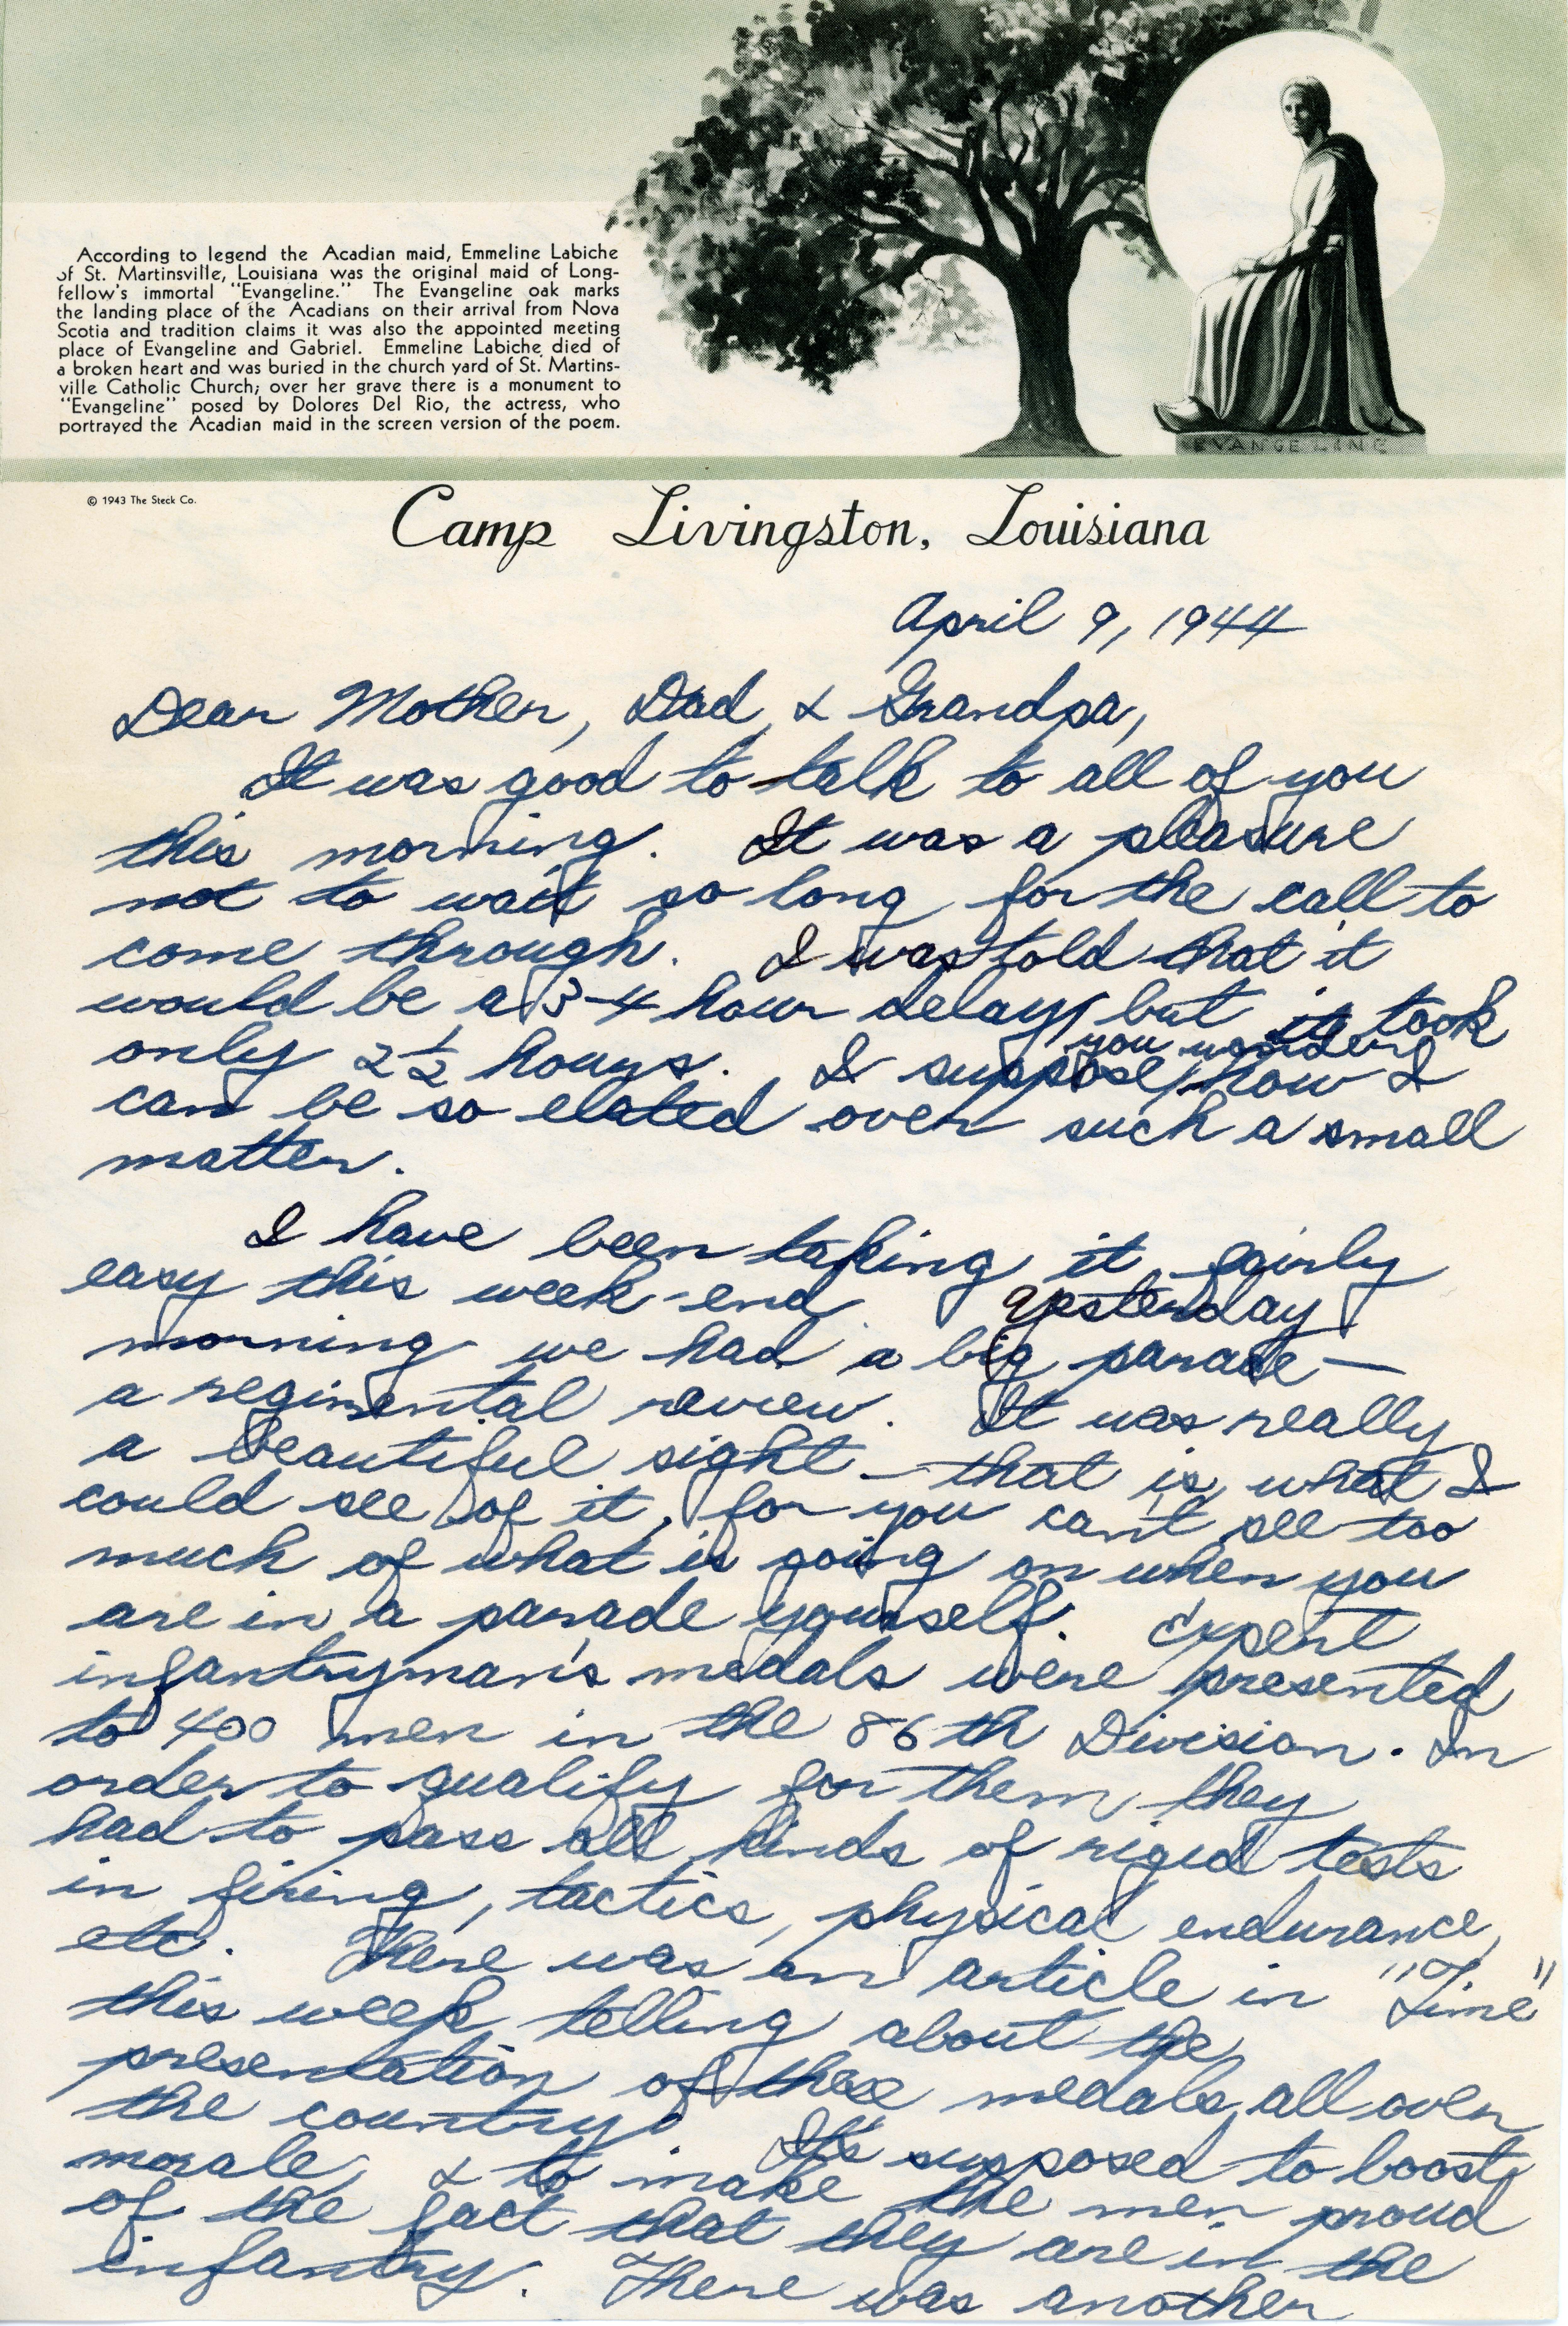 According to legend the Acadian maid, Emmeline Labiche
of St. Martinsville, Louisiana was the original maid of Long-
fellow's immortal "Evangeline." The Evangeline oak marks
the landing place of the Acadians on their arrival from Nova
Scotia and tradition claims it was also the appointed meeting
place of Evangeline and Gabriel. Emmeline Labiche died of
a broken heart and was buried in the church yard of St. Martins-
ville Catholic Church; over her grave there is a monument to
"Evangeline" posed by Dolores Del Rio, the actress, who
portrayed the Acadian maid in the screen version of the poem.
EVANGELINE
© 1943 The Steck Co.
Camp Livingston, Louisiana
April 9, 1944
Dear Mother, Dad, & Grandpa,
It was good to talk to all of you
this morning. It was a pleasure
not to wait so long for the call to
come through. I was told that it
would be a 3-4 hour delay, but it took
only 2 1/2 hours. I suppose you wonder how I
can be so elated over such a small
matter.
I have been taking it fairly
easy this week-end. Yesterday
morning we had a big parade —
a regimental review. It was really
a beautiful sight – that is, what I
could see of it, for you can't see too
much of what is going on when you
are in a parade yourself. Expert
infantryman's medals were presented
to 400 men in the 86th Division. In
order to qualify for them they
had to pass all kinds of rigid tests
in firing, tactics, physical endurance,
etc. There was an article in "Time"
this week telling about the
presentation of these medals all over
the country. It's supposed to boost
morale, & to make the men proud
of the fact that they are in the
infantry. There was another